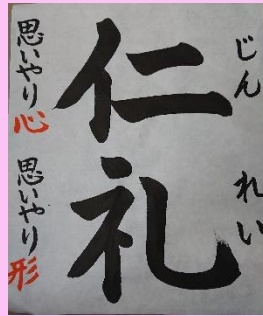 じん れい
仁礼
思いやり心 思いやり形